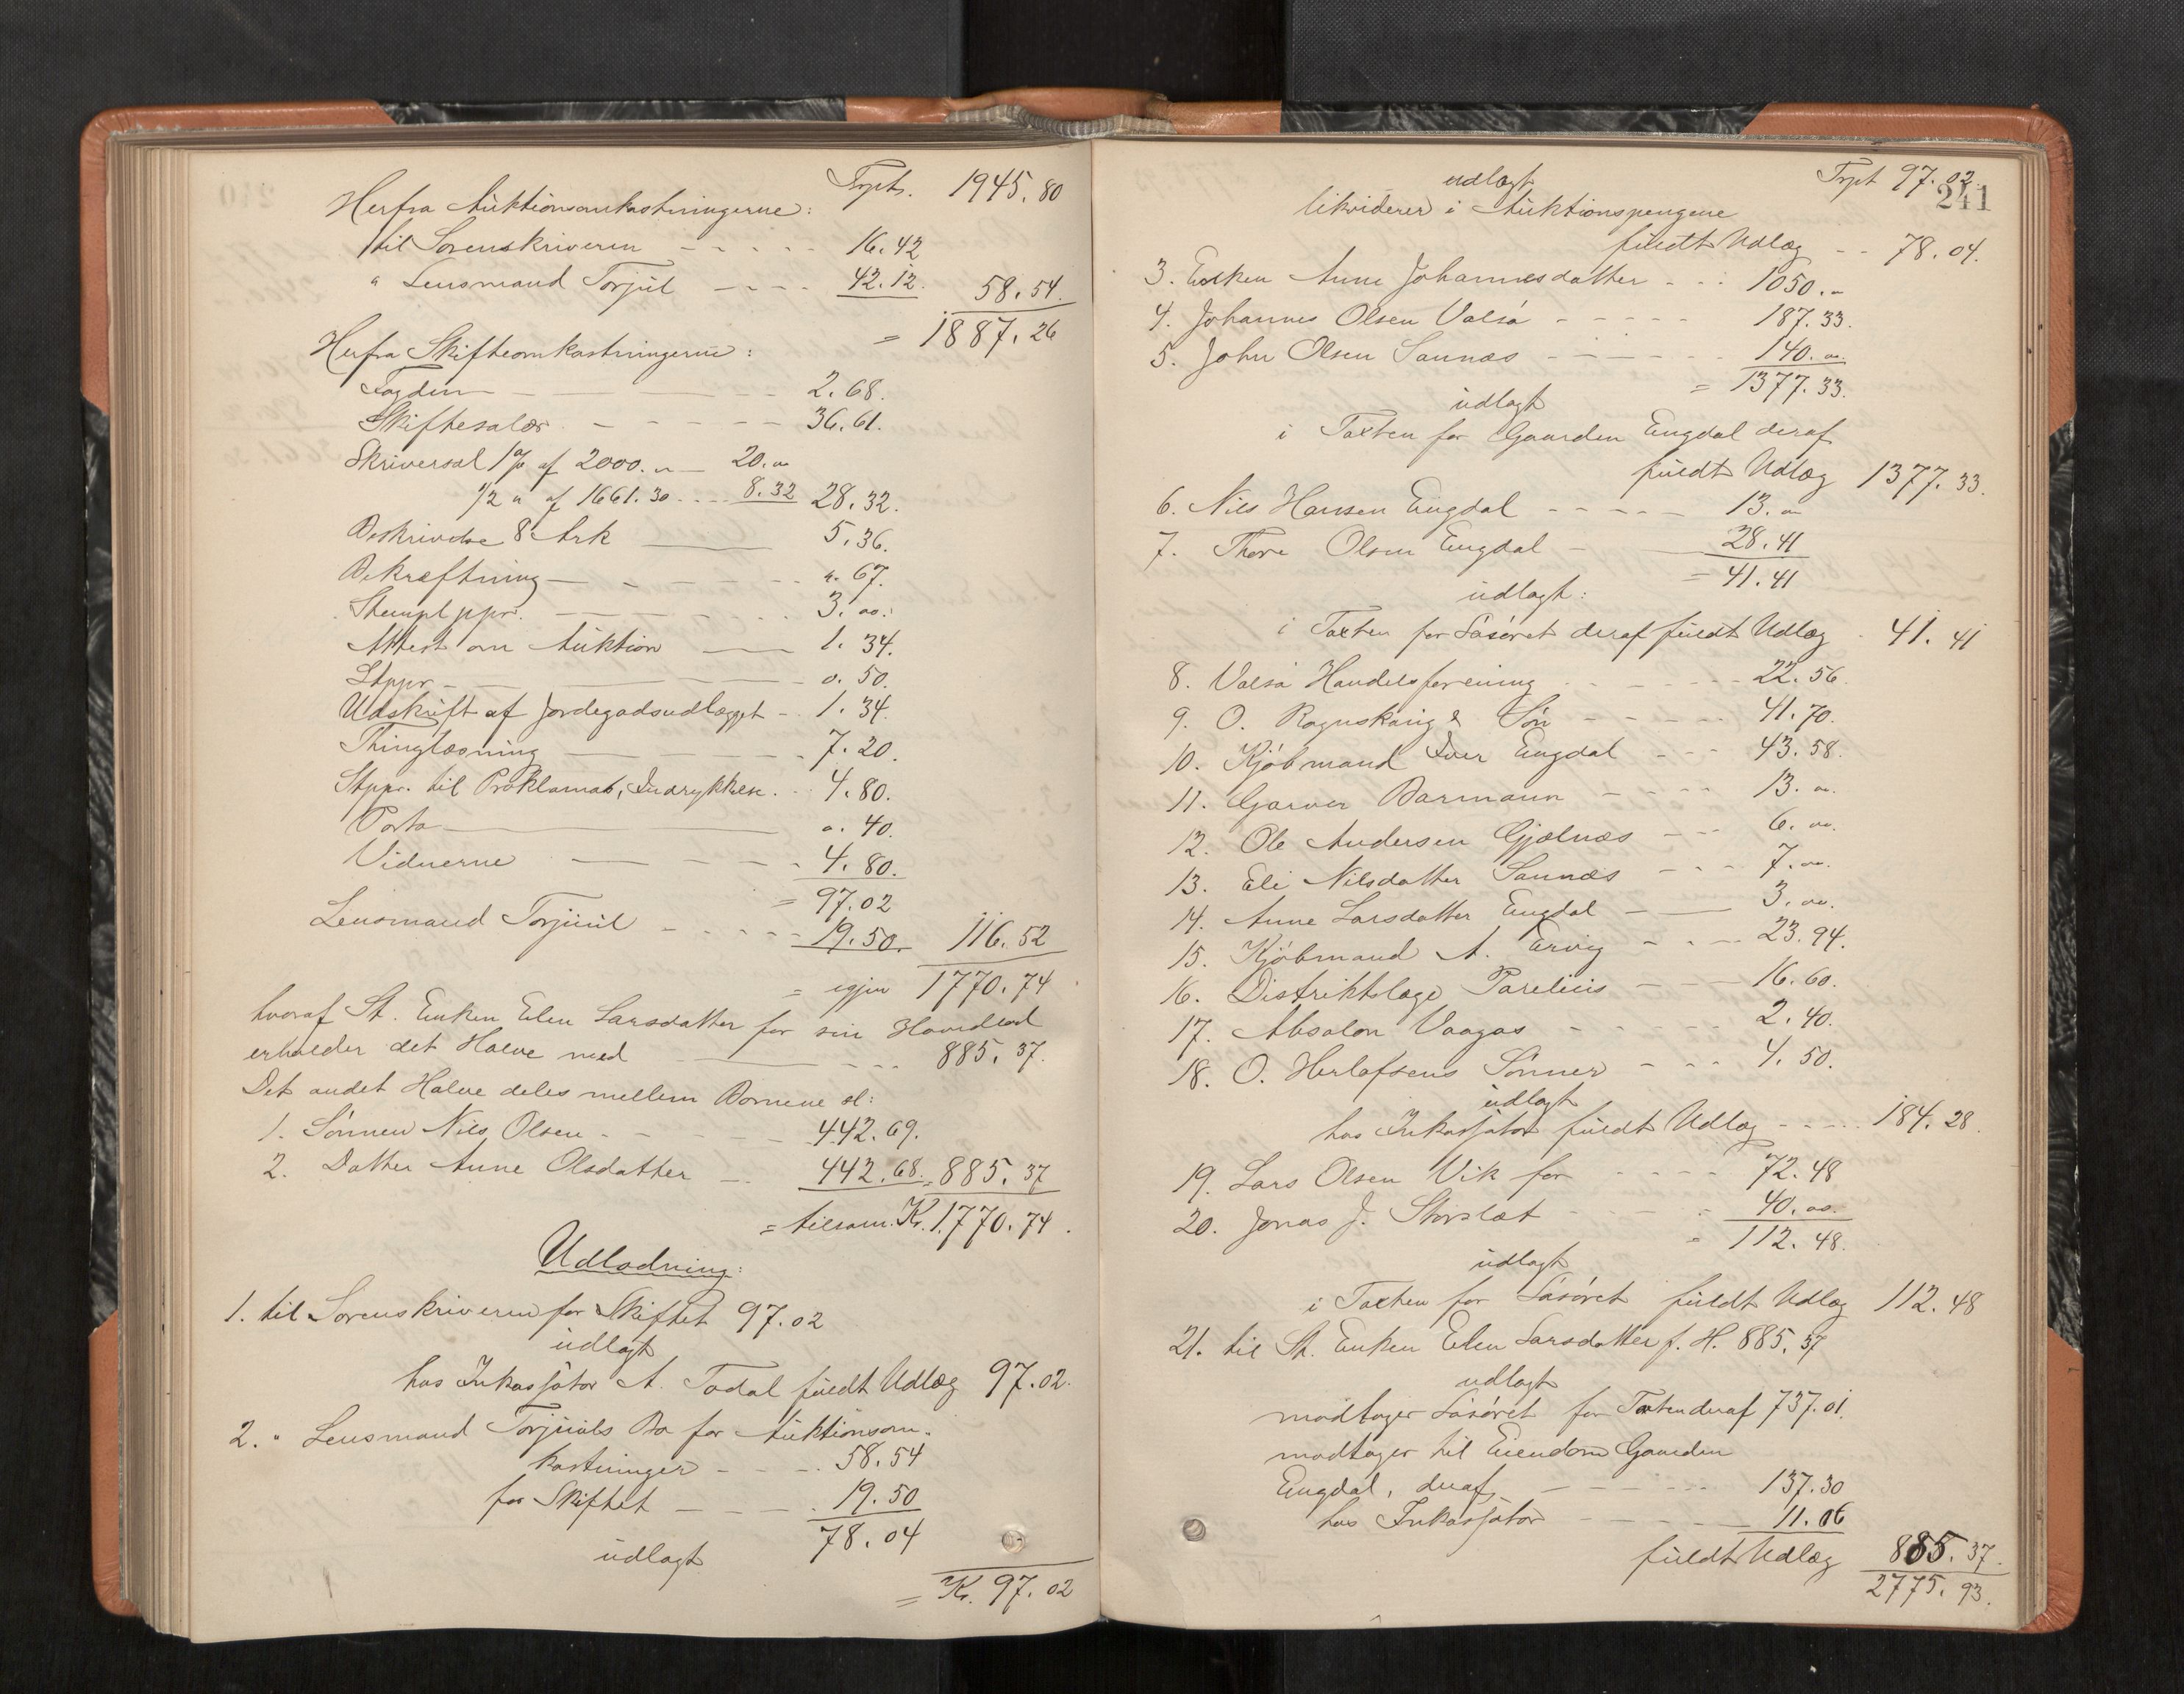 Trpt. 1945.80
Herfra Auktionsomkostningerne:
til Sorenskriveren - - - - - 16.42
" Lensmand Torjul - - - - 42.12. 58.54.
= 1887.26
Herfra Skifteomkostningerne:
Fogden - - - 2.68.
Skiftesalær - - - - - 36.61.
Skriversal 1% af 2000. " - 20. "
1/2 " af 1661.30 - - - 8.32 28.32.
Beskrivelse 8 Ark - 5.36.
Bekræftning - - - - - ". 67.
Stempl. ppr. - - - - 3. oo.
Attest om Auktion - 1. 34.
Stppr - - - o. 50.
Udskrift af Jordegodsudlægget - 1. 34.
Thinglæsning - - 7. 20.
Stppr. til Proklamas, Indrykkelse. - 4. 80.
Porto - o. 40.
Vidnerne - - - - 4. 80.
= 97.02
Lensmand Torjuul - - - - - 19.50. 116.52
= igjen 1770.74
hvoraf St. Enken Elen Larsdatter for sin Hovedlod
erholder det Halve med - - - - 885.37.
Det andet Halve deles mellem Børnene sl:
1. Sønnen Nils Olsen - - - - 442.69.
2. Datter Anne Olsdatter - - 442.68. = 885.37
= tilsam. Kr. 1770.74.
Udlodning:
1. til Sorenskriveren for Skiftet 97.02
udlagt
hos Inkassator A. Todal fuldt Udlæg 97.02.
2. " Lensmand Torjuuls Bo for Auktionsom-
kostninger - - - 58.54
for Skiftet - - 19.50
78.04
udlagt
= Kr. 97.02
Trpt 97.02.
241
udlagt
likviderer i Auktionspengene
fuldt Udlæg - - 78.04.
3. Enken Anne Johannesdatter - - - 1050. -
4. Johannes Olsen Valsø - - - - - 187.33.
5. John Olsen Sannæs - - - - - 140. oo.
= 1377.33.
udlagt
i Taxten for Gaarden Engdal deraf
fuldt Udlæg 1377.33.
6. Nils Hansen Engdal - - - - - 13. "
7. Thore Olsen Engdal - 28.41
= 41.41
udlagt:
i Taxten for Løsøret deraf fuldt Udlæg - 41.41
8. Valsø Handelsforening - - - - - 22.56.
9. O. Rognskaug & Søn - - - - - 41.70.
10. Kjøbmand Iver Engdal - - - 43.58.
11. Garver Barmann - - - - 13. oo.
12. Ole Andersen Gjølnæs - - - 6. oo.
13. Eli Nilsdatter Sannæs - - - 7. oo.
14. Anne Larsdatter Engdal - - 3. oo.
15. Kjøbmand A. Ervig - - - - 23.94.
16. Distriktslæge Parelius - - - 16.60.
17. Absalon Vaagos - - - - - 2.40.
18. O. Herlofsens Sønner - - - 4.50.
udlagt
hos Inkassator fuldt Udlæg - - - - - 184.28.
19. Lars Olsen Vik for - - - - 72.48
20. Jonas J. Storslæt - - - - - 40. oo.
= 112.48.
udlagt
i Taxten for Løsøret fuldt Udlæg 112.48
21. til St. Enken Elen Larsdatter f. H. 885.37
udlagt
modtager Løsøret for Taxten deraf 737.01.
modtager til Eiendom Gaarden
Engdal, deraf - - - - - 137.30
hos Inkassator - - - - - 11.06
fuldt Udlæg 885.37.
2775.93.